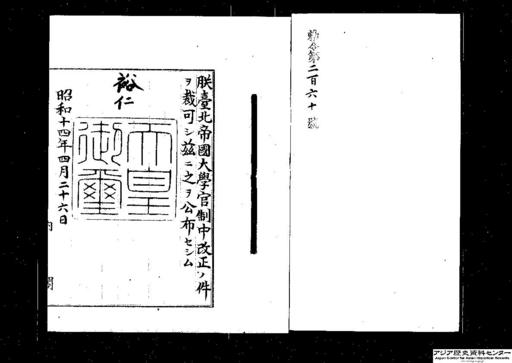 勅令第二百六十號
朕臺北帝國大學官制中改正ノ件
ヲ裁可シ茲ニ之ヲ公布セシム
裕仁
天皇御璽
昭和十四年四月二十六日
内閣
アジア歴史資料センター
Japan Center for Asian Historical Records